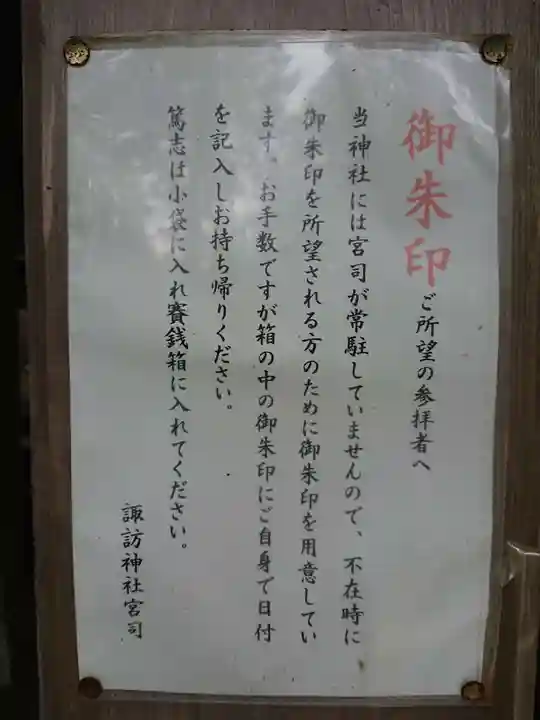 御朱印ご所望の参拝者へ
当神社には宮司が常駐していませんので、不在時に
御朱印を所望される方のために御朱印を用意してい
ます。お手数ですが箱の中の御朱印にご自身で日付
を記入しお持ち帰りください。
篤志は小袋に入れ賽銭箱に入れてください。
諏訪神社宮司